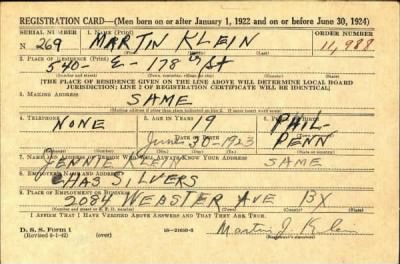 REGISTRATION CARD—(Men born on or after January 1, 1922 and on or before June 30, 1924)
SERIAL NUMBER 1. NAME (Print) ORDER NUMBER
N 269 MARTIN KLEIN 11,988
2. PLACE OF RESIDENCE (Print)
540- E- 178 th St
[THE PLACE OF RESIDENCE GIVEN ON THE LINE ABOVE WILL DETERMINE LOCAL BOARD
JURISDICTION; LINE 2 OF REGISTRATION CERTIFICATE WILL BE IDENTICAL]
3. MAILING ADDRESS
SAME
4. TELEPHONE 5. AGE IN YEARS 6. PLACE OF BIRTH
NONE 19 PHIL-
DATE OF BIRTH
June 30-1923 PENN
7. NAME AND ADDRESS OF PERSON WHO WILL ALWAYS KNOW YOUR ADDRESS
JENNIE KLEIN SAME
8. EMPLOYER'S NAME AND ADDRESS
CHAS SILVERS
9. PLACE OF EMPLOYMENT OR BUSINESS
2084 WEBSTER AVE BX
I AFFIRM THAT I HAVE VERIFIED ABOVE ANSWERS AND THAT THEY ARE TRUE.
D. S. S. Form 1
(Revised 6-1-42) (over) Martin J. Klein
(Registrant's signature)